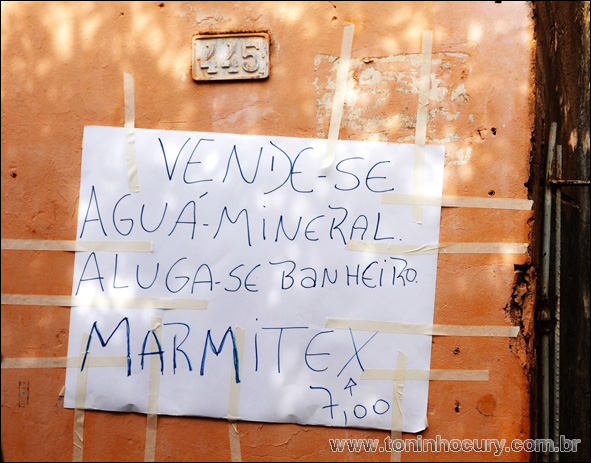 445
VENDE-SE
AGUÁ-MINERAL.
ALUGA-SE BANHEIRO.
MARMITEX
7,00
www.toninhocury.com.br